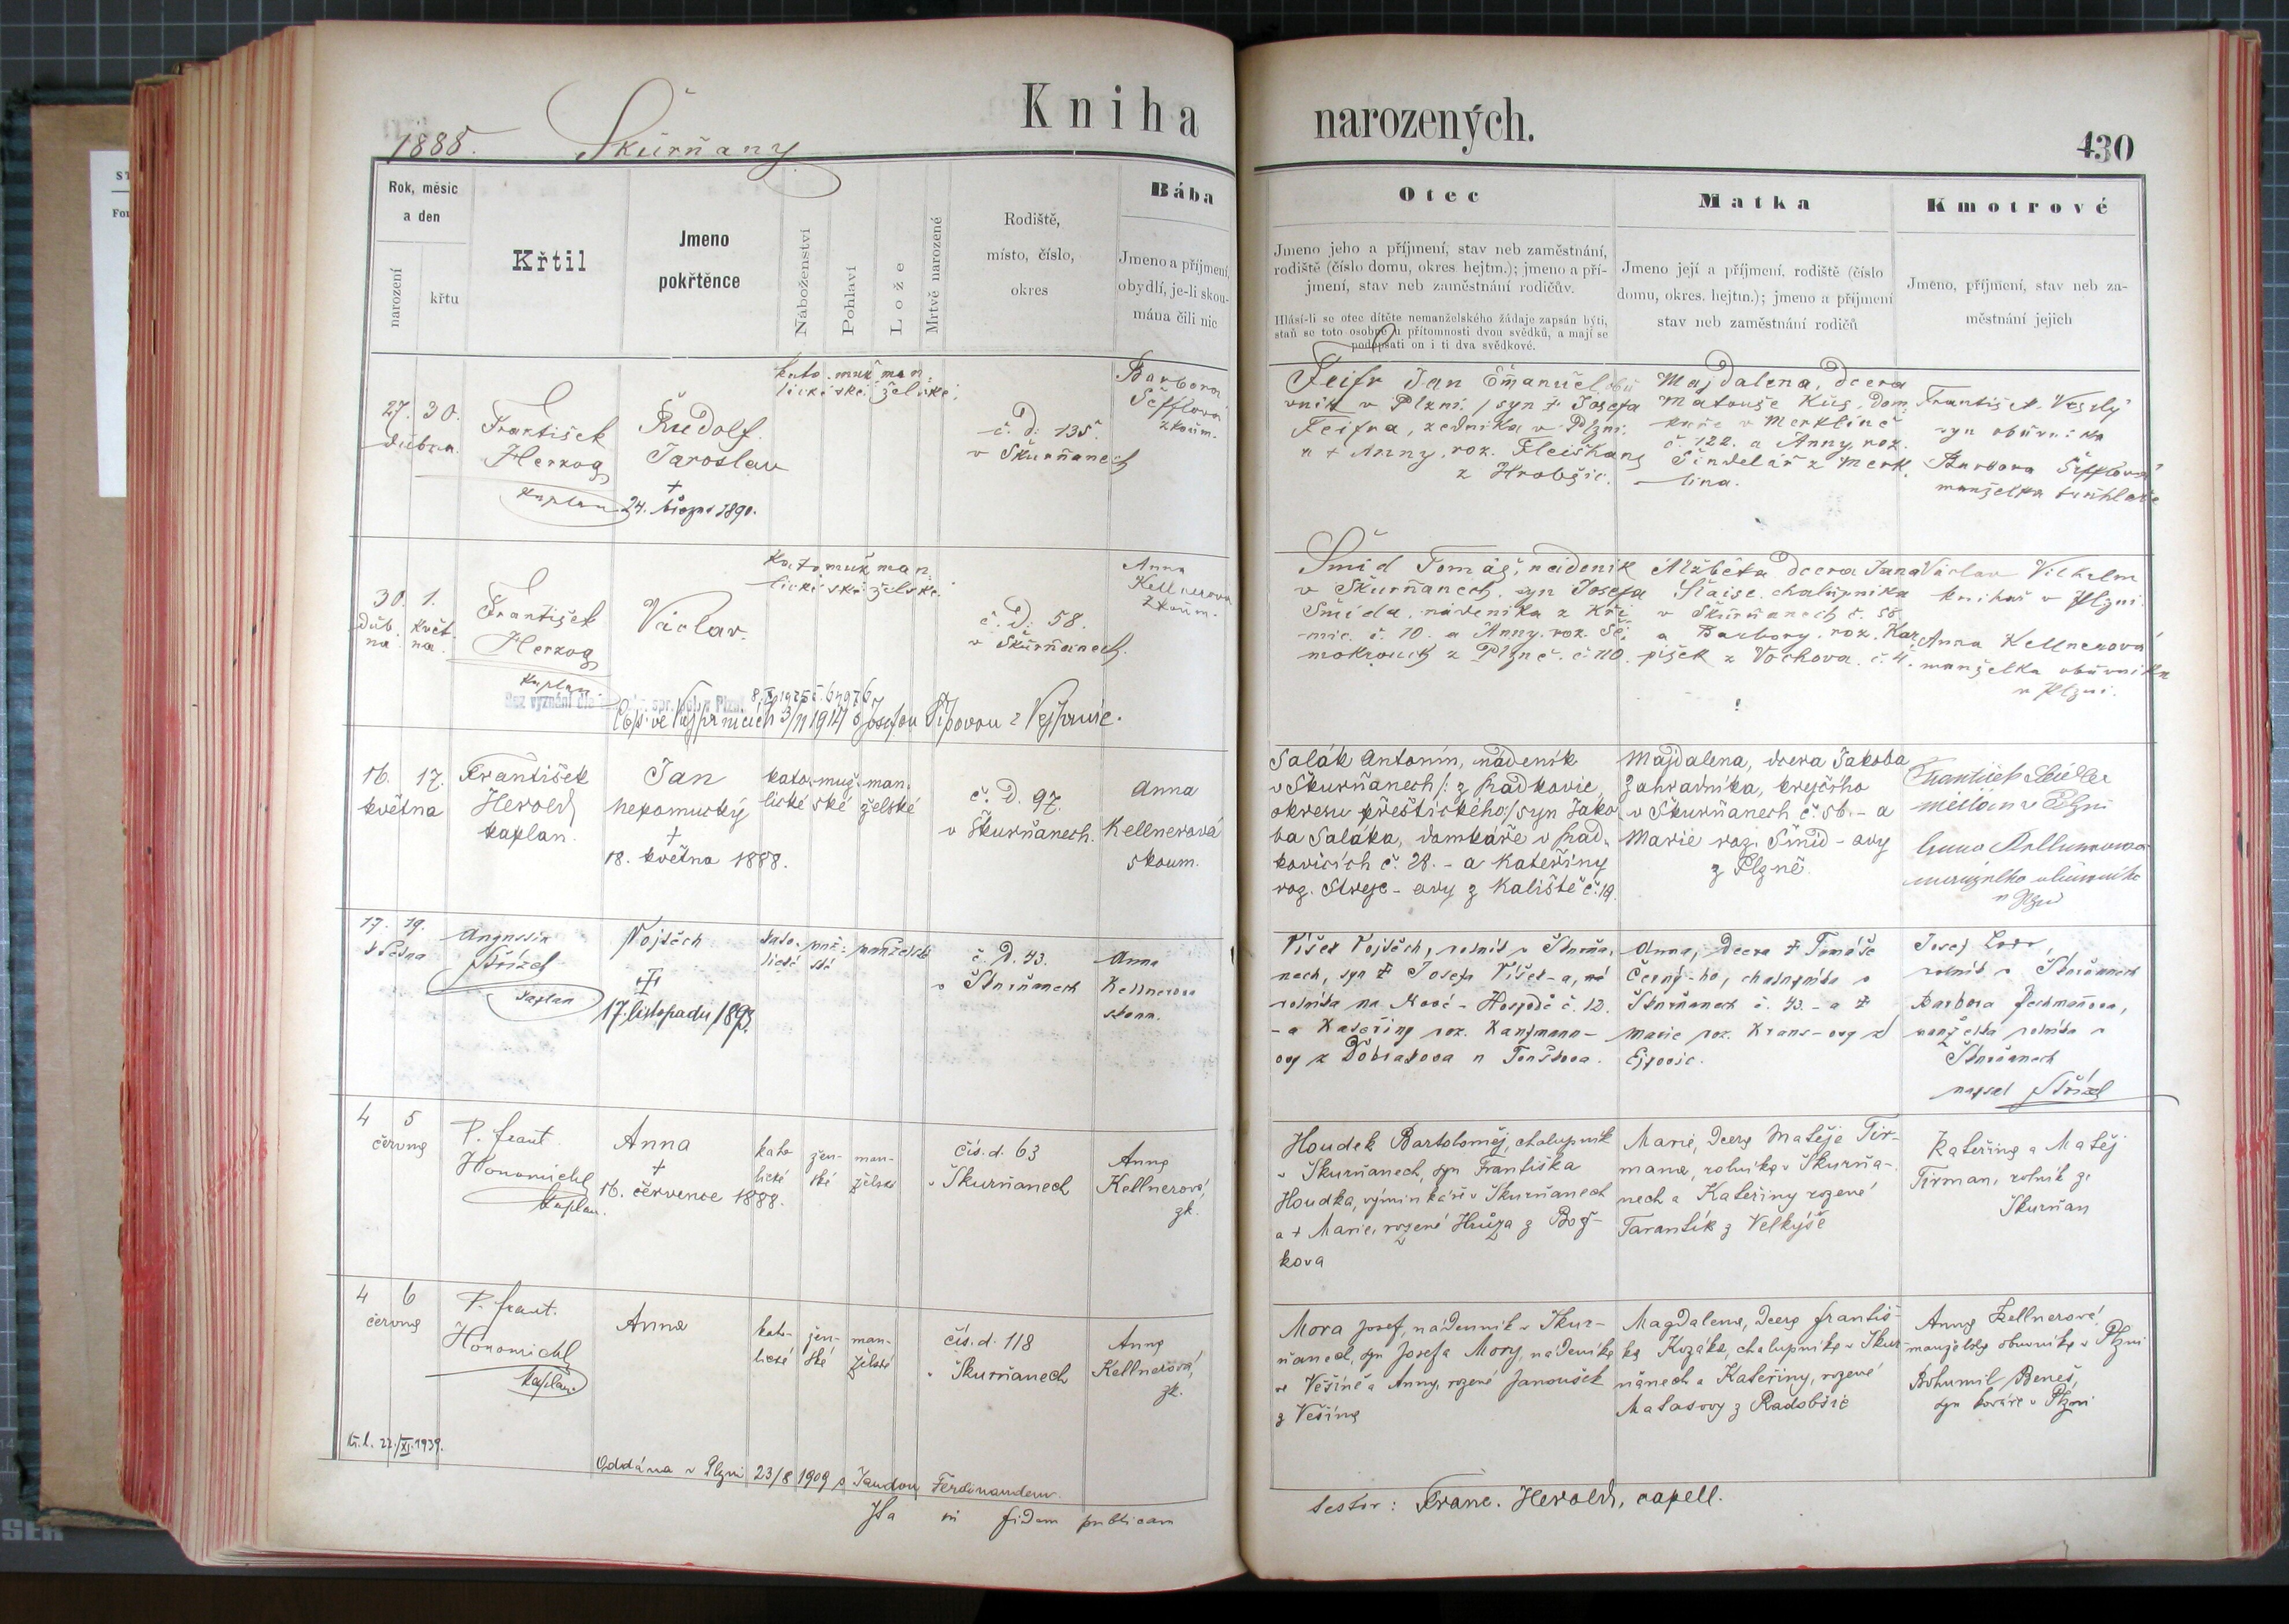 Kniha narozených.
1888. Škúrňany
130
Rok, měsíc a den
narození
křtu
Křtil
Jmeno pokřtěnce
Náboženství
Pohlaví
Lože
Mrtvě narozené
Rodiště, místo, číslo, okres
Bába
Jmeno a příjmení, obydlí, je-li skou-
mána čili nic
Otec
Jmeno jeho a příjmení, stav neb zaměstnání,
rodiště (číslo domu, okres hejtm.); jmeno a pří-
jmení, stav neb zaměstnání rodičův.
Hlásí-li se otec dítěte nemanželského žádaje zapsán býti,
staň se toto osobně u přítomnosti dvou svědků, a mají se
podepsati on i ti dva svědkové.
Matka
Jmeno její a příjmení, rodiště (číslo
domu, okres. hejtm.); jmeno a příjmení
stav neb zaměstnání rodičů
Kmotrové
Jmeno, příjmení, stav neb za-
městnání jejich
27. 30.
dubna.
František
Herzog
kaplan
Rudolf
Jaroslav
+
24. března 1890.
kato- muž man-
lické ské želské
č. d. 135.
v Škurňanech
Barbora
Šefflová
zkoum.
Feifr Jan Emanuel obu
vník v Plzni, syn + Josefa
Feifra, zedníka v Plzni
a + Anny, roz. Fleišhans
z Hrobšic.
Majdalena, dcera
Matouše Kůs, dom-
káře v Merklíně
č. 122. a Anny roz.
Šindelář z Merk-
lína.
František Veselý
syn obuvníka
Barbora Šefflová
manželka truhláře
30. 1.
dub- květ-
na. na.
František
Herzog
kaplan.
Václav.
kato muž man-
lické ské želské.
č. d. 58.
v Škurňanech.
Anna
Kellnerova
zkoum.
Šmíd Tomáš, nádeník
v Škurňanech, syn Josefa
Šmída, nádeníka z Kři-
mic. č. 10. a Anny roz.
z Plzně. č. 110.
Alžběta dcera Jana
chalupníka
v Škurňanech č. 58
a Barbory. roz. Kar-
píšek z Vochova. č. 4.
Václav Vilhelm
knihař v Plzni.
Anna Kellnerová
manželka obuvníka
v Plzni.
Bez vyznání dle
spr. pol. v Plzni 8/ 1925 č. 64976
ve Vejprnicích 3/11 1914 s Josefou Šípovou z Vejprnic.
16. 17.
května
František
Herold
kaplan.
Jan
nepomucký
+
18. května 1888.
kato- muž- man-
lické ské želské
č. d. 97.
v Škurňanech.
Anna
Kellnerová
zkoum.
Salák Antonín, nádeník
v Škurňanech /: z Radkovic,
okresu přeštického:/ syn Jako
ba Saláka, domkáře v Rad-
kovicích č. 28. - a Kateřiny
roz. Strejc - ovy z Kaliště č. 19.
Majdalena, dcera Jakoba
Zahradníka, krejčího
v Škurňanech č. 56. - a
Marie roz. Šmíd - ovy
z Plzně.
František
v Plzni
Anna Kellnerova
manželka obuvníka
v Plzni
17. 19.
května
Augustin
Střízel
kaplan
Vojtěch
17. listopadu 1893.
kato- muž- manželské
lické ské
č. D. 43.
v Škurňanech
Anna
Kellnerova
zkoum.
Víšek Vojtěch, rolník v Škurňa-
nech, syn + Josefa Víšek-a,
rolníka na Nové - Hospodě č. 12.
- a Kateřiny roz. Kaufmann -
ovy z Dobřan
Anna, dcera + Tomáše
Černý-ho, chalupníka v
Škurňanech č. 43. - a +
Marie roz. Krans - ovy z
Ejpovic.
Josef
rolník v Škurňanech
Barbora Pechmanova,
manželka rolníka v
Škurňanech
napsal Střízel
4 5
června
P. Frant.
Honomichl
kaplan.
Anna
+
16. července 1888.
kato- žen- man-
lické ské želské
čís. d. 63
v Škurňanech
Anna
Kellnerová,
zk.
Houdek Bartoloměj, chalupník
v Škurňanech, syn Františka
Houdka, výminkáře v Škurňanech
a + Marie, rozené Hrůza z Bož-
kova
Marie, dcera Matěje Tir-
mana, rolníka v Škurňa-
nech a Kateřiny rozené
Tarantík z Velkýše
Kateřina a Matěj
Tirman, rolník ze
Škurňan
4 6
června
P. Frant.
Honomichl
kaplan
Anna
kato- žen- man-
lické ské želské
čís. d. 118
v Škurňanech
Anna
Kellnerová,
zk.
Mora Josef, nádenník v Škur-
ňanech, syn Josefa Mory, nádeníka
ve Vešíně a Anny, rozené Janoušek
z Vešína
Magdalena, dcera Františ-
ka Kozáka, chalupníka v Škur-
ňanech a Kateřiny, rozené
Matasovy z Radobšic
Anna Kellnerová,
manželka obuvníka v Plzni
Bohumil Beneš,
syn kováře v Plzni
Kř. l. 22./XI. 1939.
Oddána v Plzni 23/8 1909 s Jandou Ferdinandem.
Ita in fidem publicam
testor: Franc. Herold, capell.